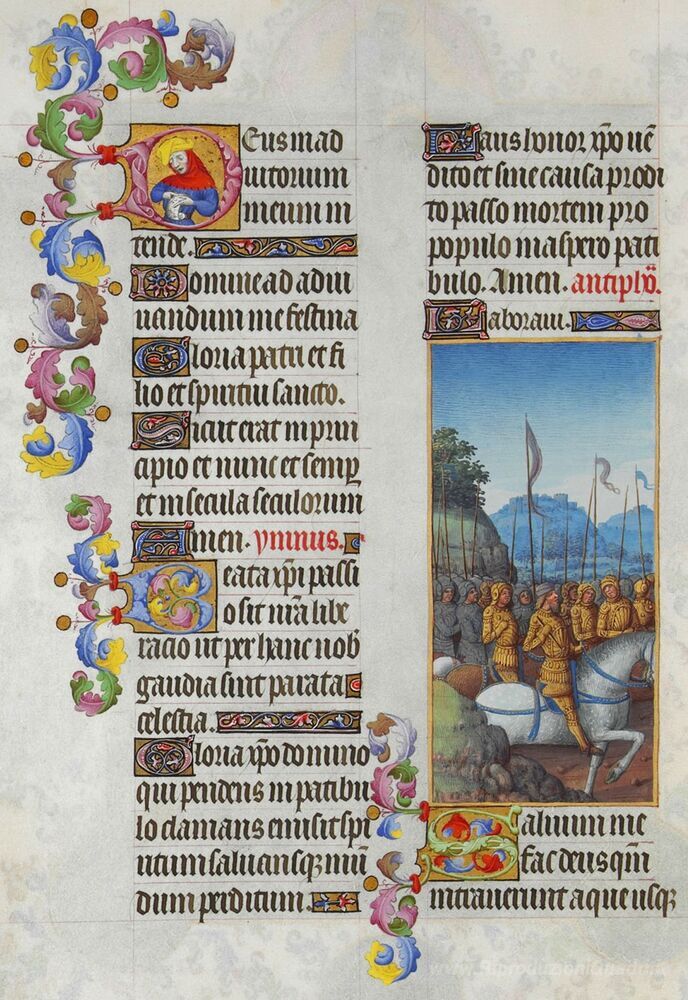 Deus in ad
iutorium
meum in
tende.
Domine ad adiu
uandum me festina
Gloria patri et fi
lio et spiritui sancto.
Sicut erat in prin
cipio et nunc et semp
et in secula seculorum
Amen. ymnus.
Beata xpi passi
o sit nra libe
racio ut per hanc nob
gaudia sint parata
celestia.
Gloria xpo domino
qui pendens in patibu
lo clamans emisit spi
ritum saluansq mun
dum perditum.
Laus honor xpo ven
dito et sine causa prodi
to passo mortem pro
populo in aspero pati
bulo. Amen. antipho.
Laboraui.
Saluum me
fac deus qm
intrauerunt aque usq